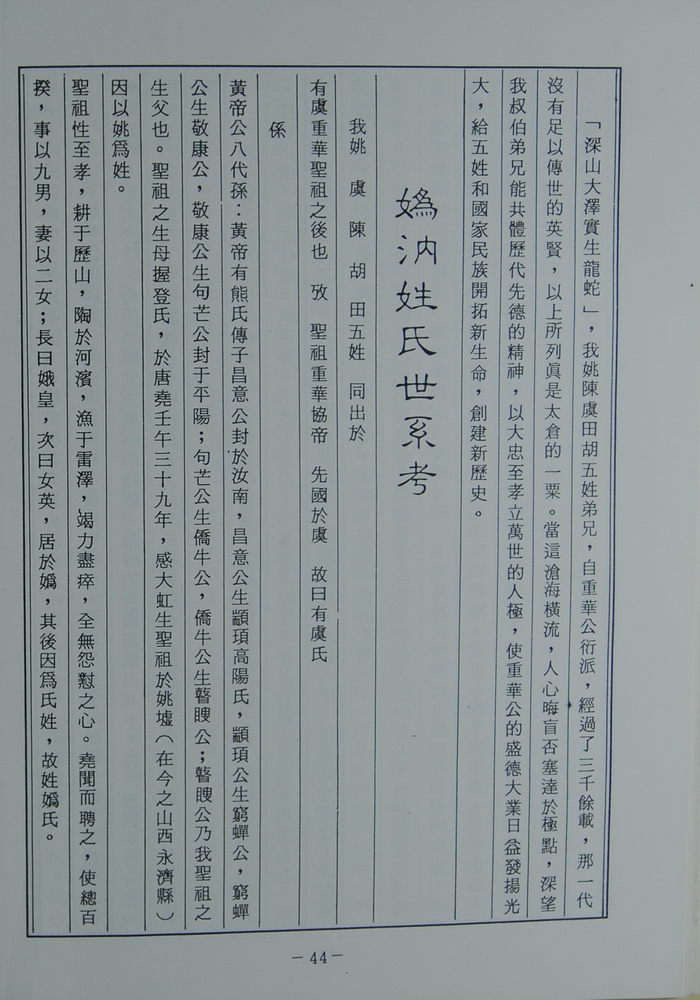 「深山大澤實生龍蛇」，我姚陳虞田胡五姓弟兄，自重華公衍派，經過了三千餘載，那一代
沒有足以傳世的英賢，以上所列眞是太倉的一粟。當這滄海橫流，人心晦盲否塞達於極點，深望
我叔伯弟兄能共體歷代先德的精神，以大忠至孝立萬世的人極，使重華公的盛德大業日益發揚光
大，給五姓和國家民族開拓新生命，創建新歷史。
媯汭姓氏世系考
我姚 虞 陳 胡 田五姓 同出於
有虞重華聖祖之後也 攷 聖祖重華協帝 先國於虞 故曰有虞氏
係
黃帝公八代孫：黃帝有熊氏傳子昌意公封於汝南，昌意公生顓頊高陽氏，顓頊公生窮蟬公，窮蟬
公生敬康公，敬康公生句芒公封于平陽；句芒公生僑牛公，僑牛公生瞽瞍公；瞽瞍公乃我聖祖之
生父也。聖祖之生母握登氏，於唐堯壬午三十九年，感大虹生聖祖於姚墟（在今之山西永濟縣）
因以姚爲姓。
聖祖性至孝，耕于歷山，陶於河濱，漁于雷澤，竭力盡瘁，全無怨懟之心。堯聞而聘之，使總百
揆，事以九男，妻以二女；長曰娥皇，次曰女英，居於嬀，其後因爲氏姓，故姓嬀氏。
－44－